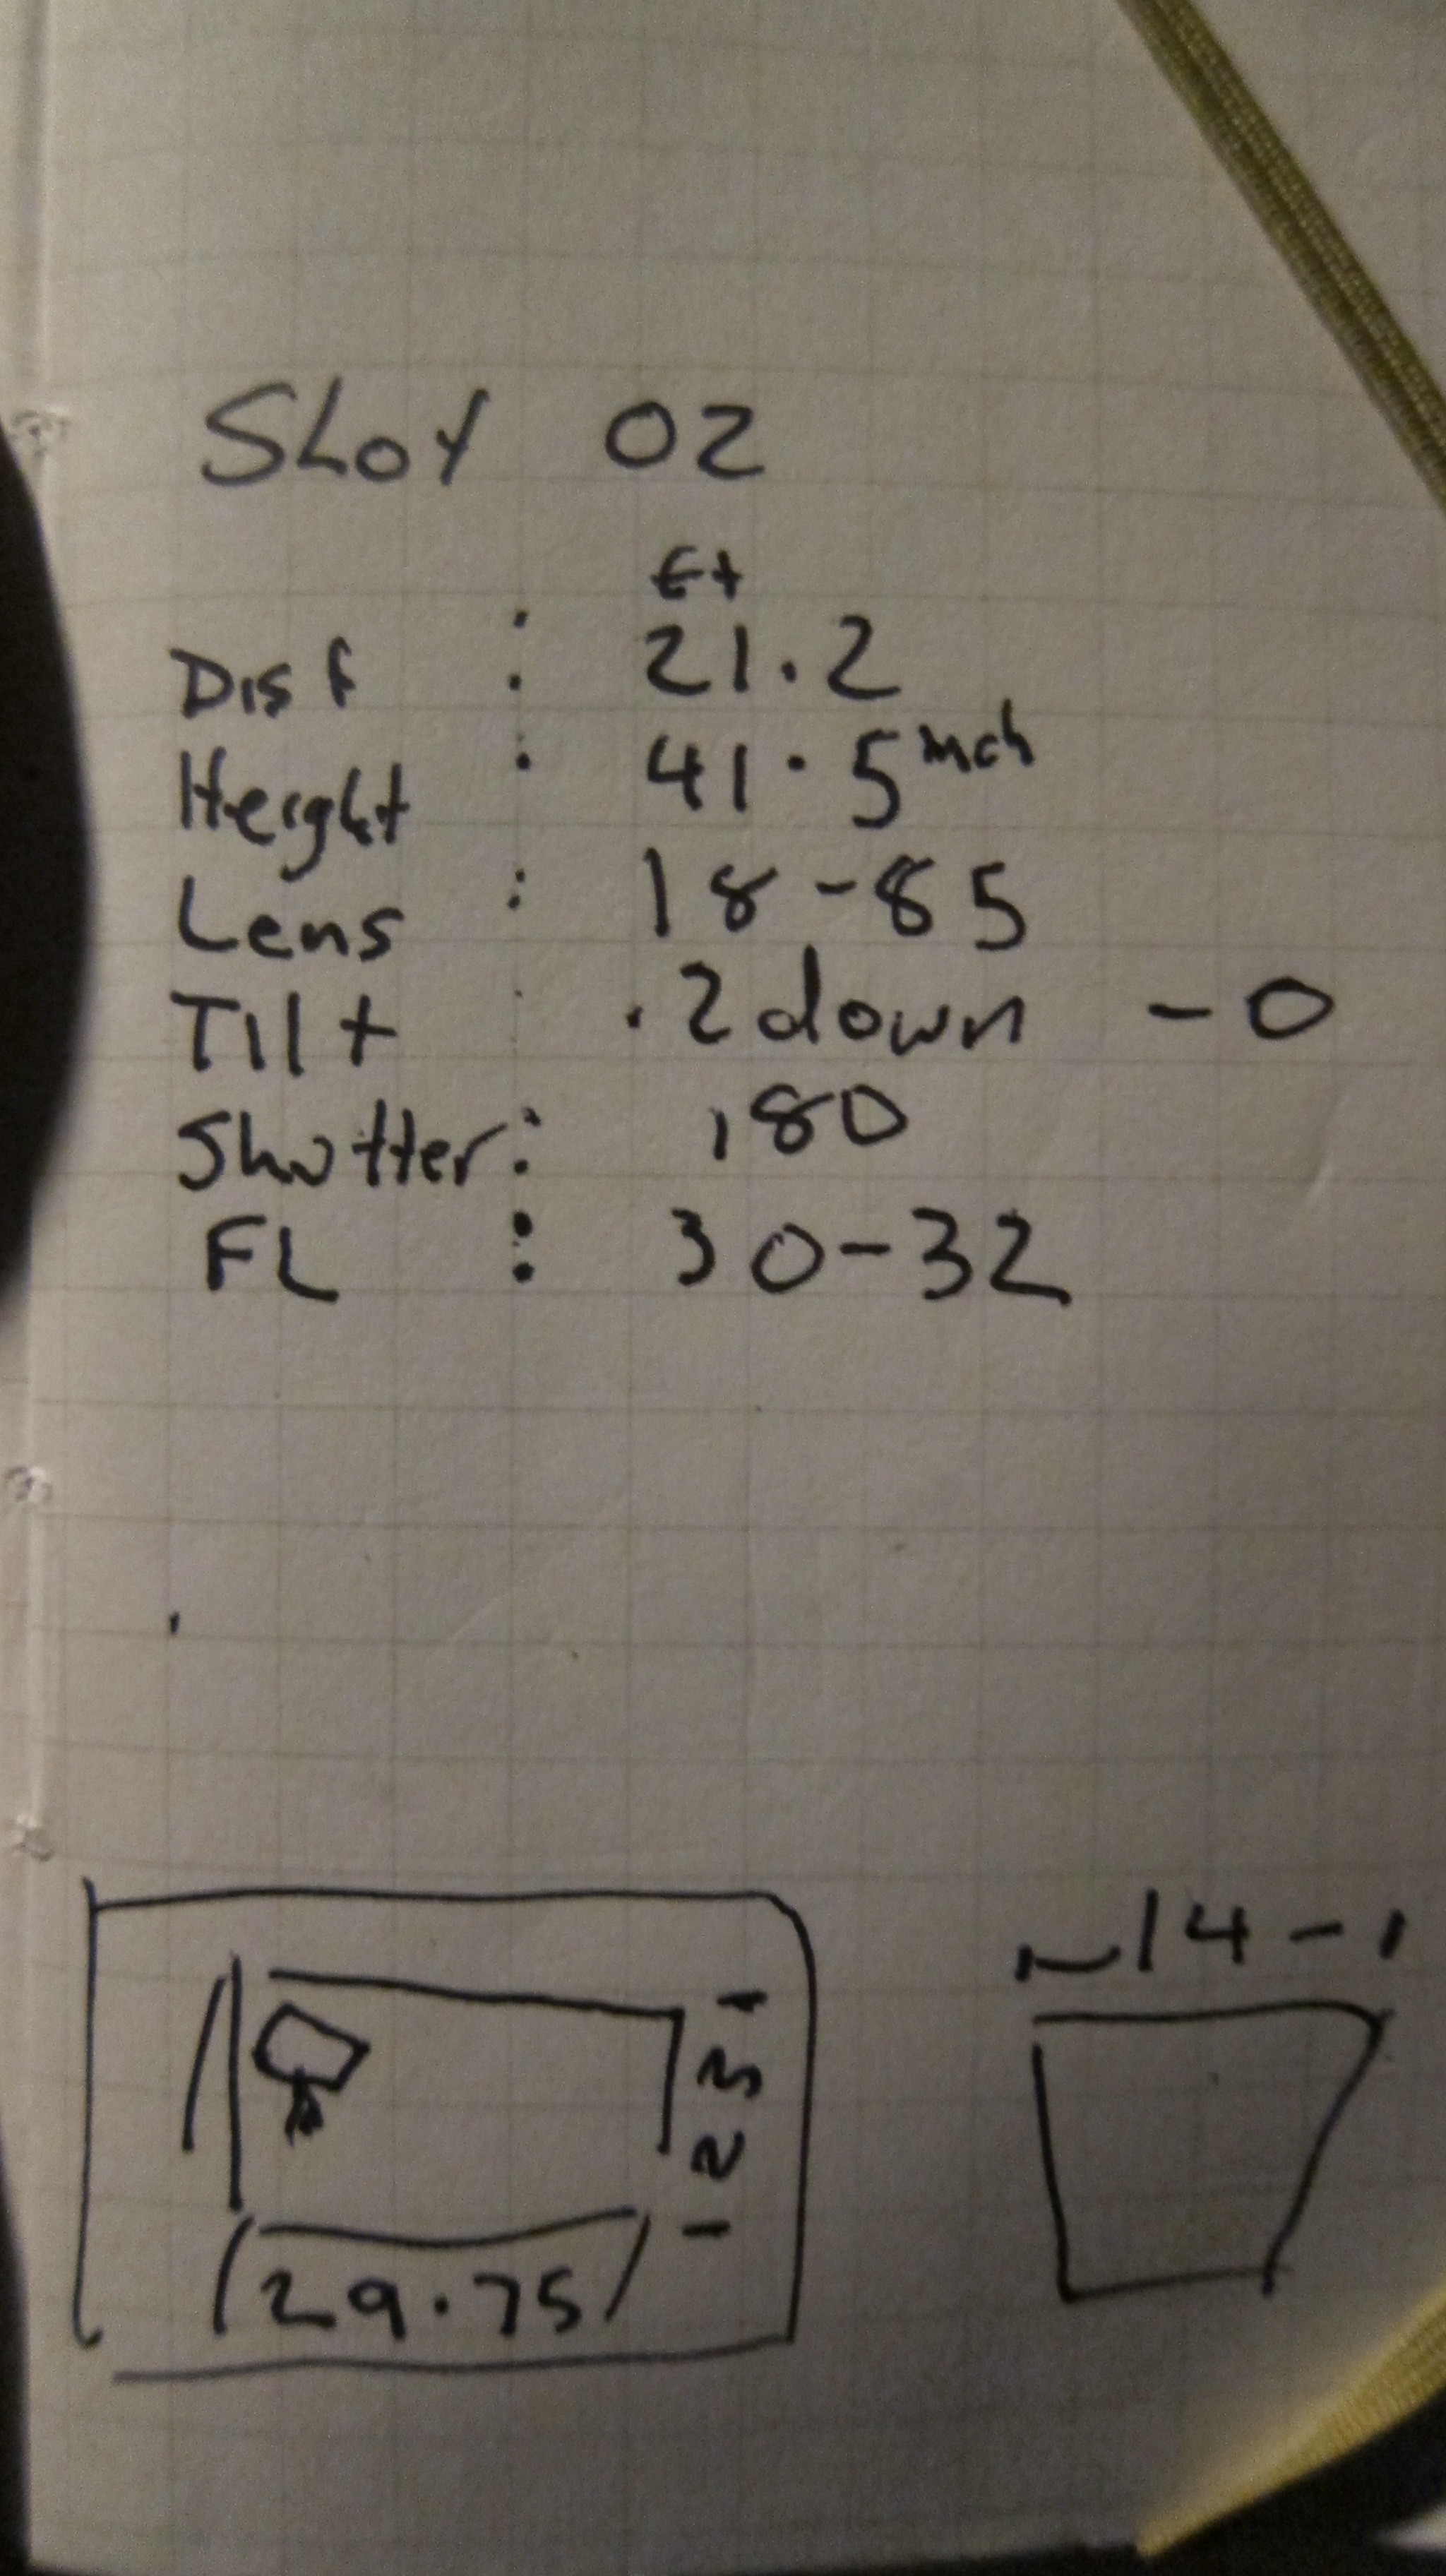 SLOY 02
ft
Dist : 21.2
Height : 41.5 inch
Lens : 18-85
Tilt : .2 down - 0
Shutter: 180
FL : 30-32
~14-1
23
29.75